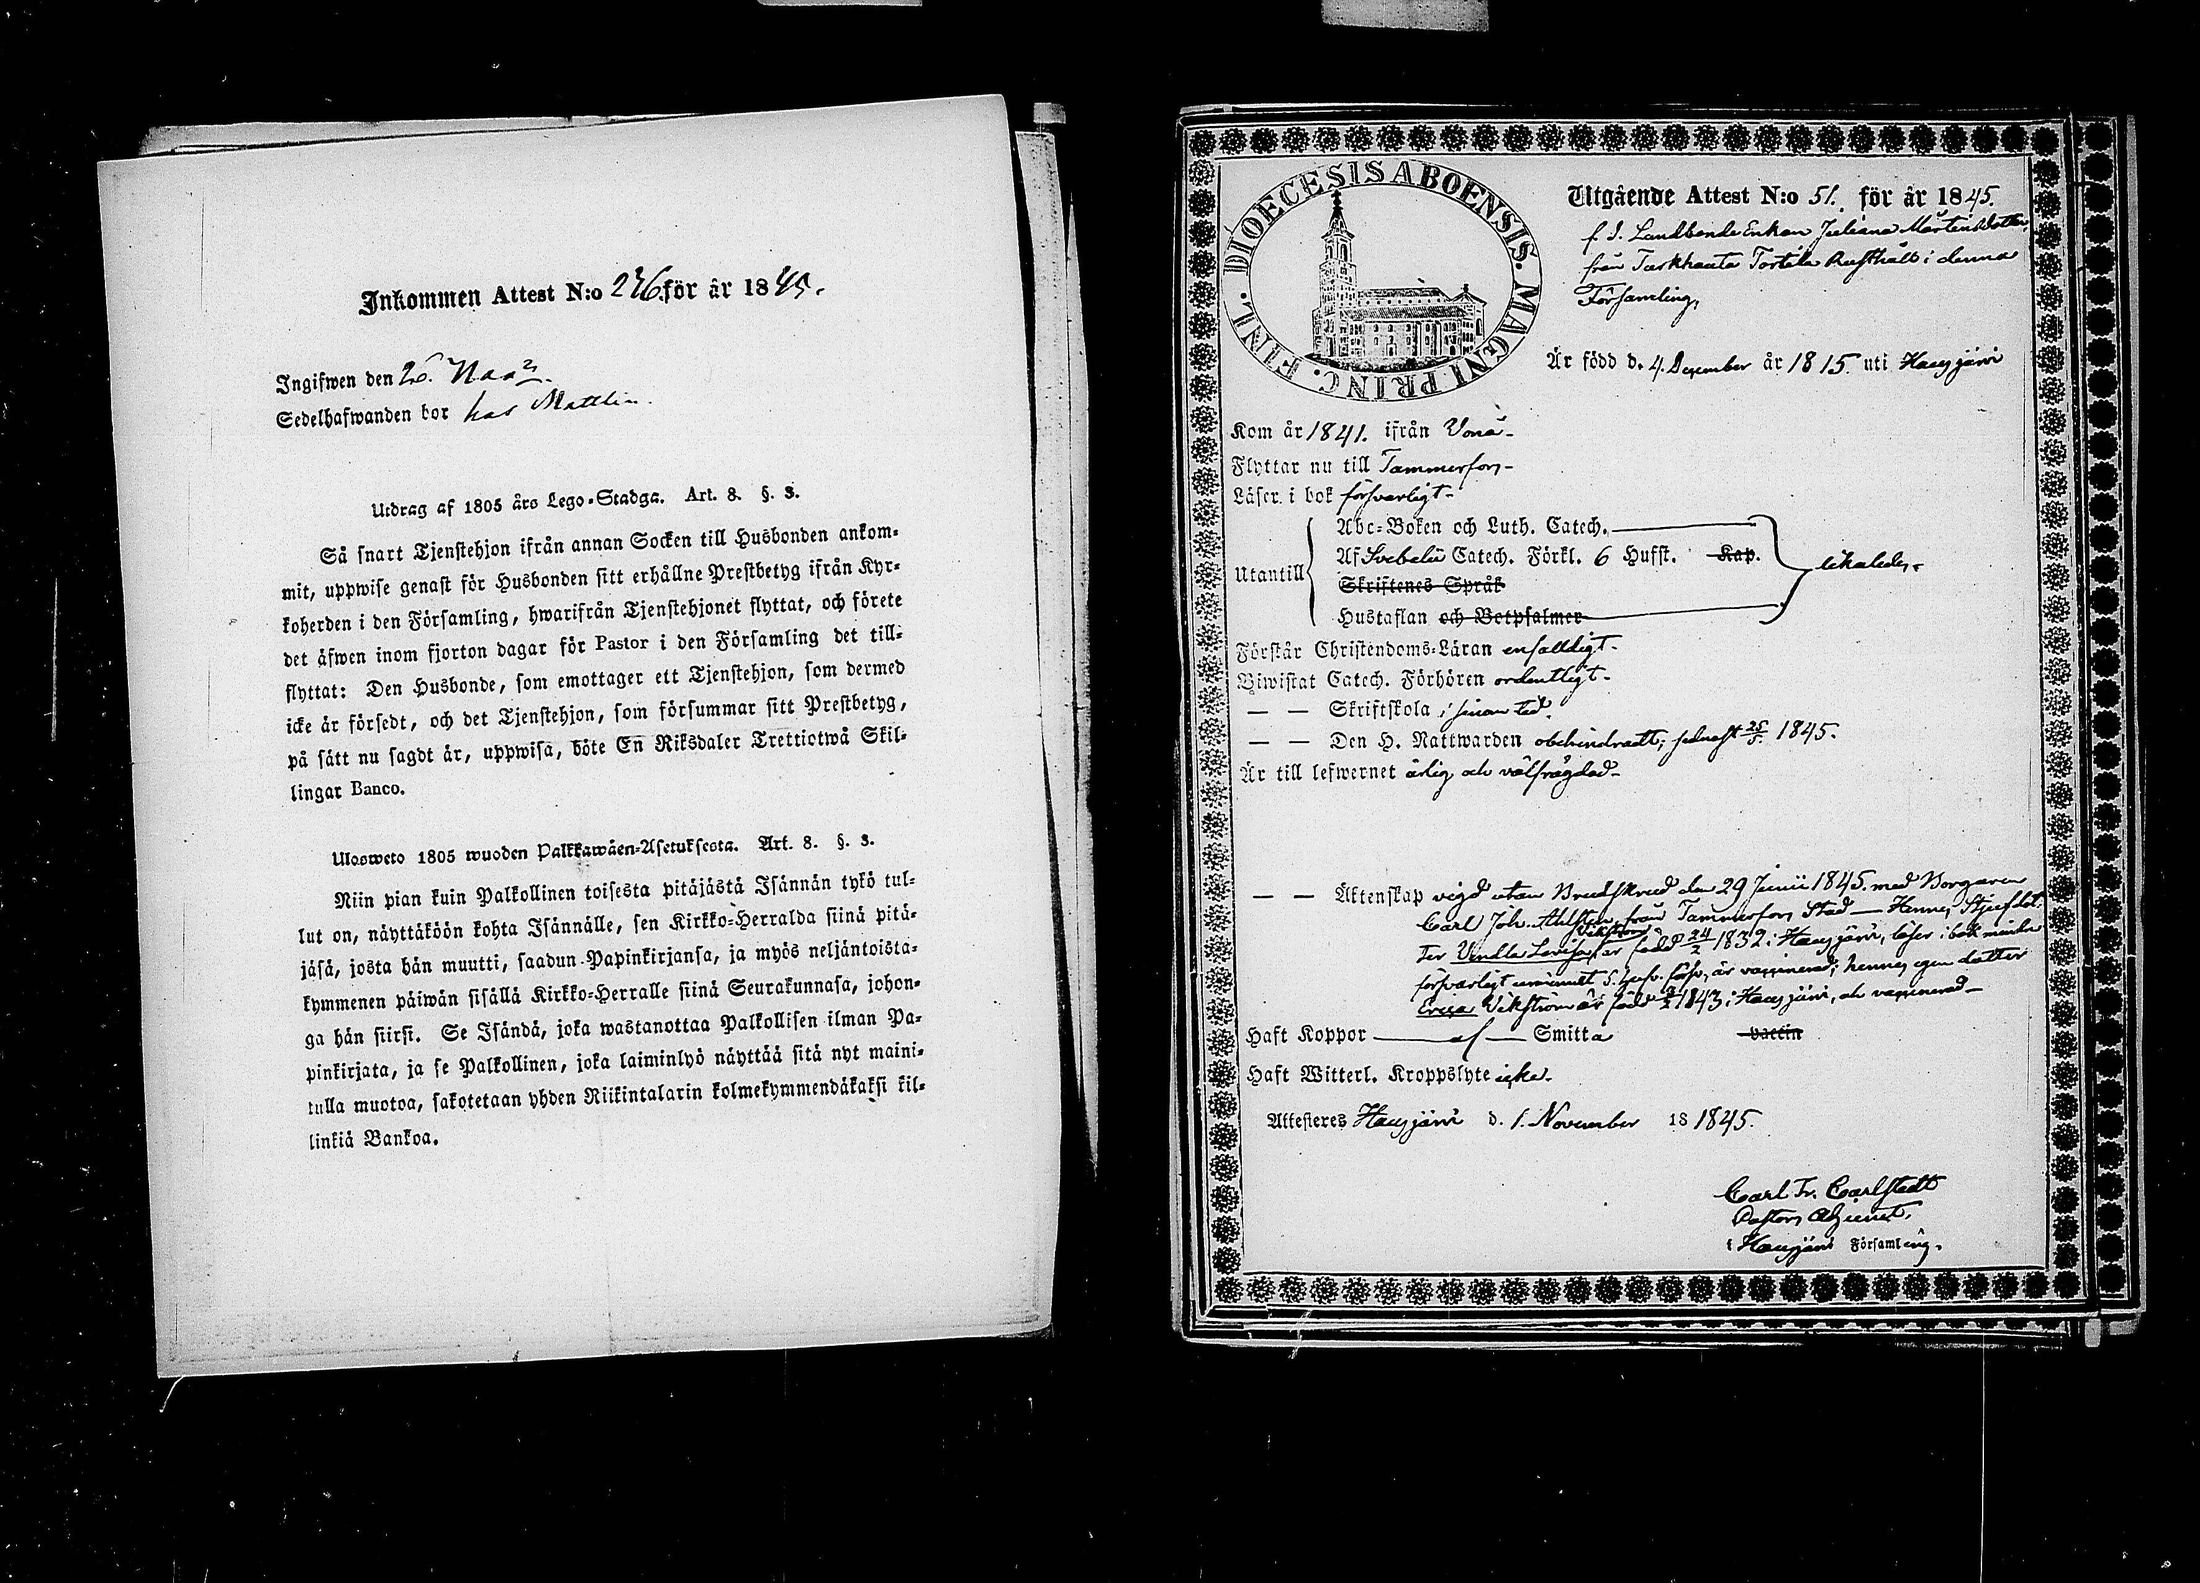 Inkommen Attest N:o 246. för år 1845.
Ingifwen den 26. Nov
Sedelhafwanden bor hos Mattlin.
Utdrag af 1805 års Lego-Stadga. Art. 8. §. 3.
Så snart Tjenstehjon ifrån annan Socken till Husbonden ankom-
mit, uppwise genast för Husbonden sitt erhållne Prestbetyg ifrån Kyr-
koherden i den Församling, hwarifrån Tjenstehjonet flyttat, och förete
det äfwen inom fjorton dagar för Pastor i den Församling det till-
flyttat: Den Husbonde, som emottager ett Tjenstehjon, som dermed
icke är försedt, och det Tjenstehjon, som försummar sitt Prestbetyg,
på sätt nu sagdt är, uppwisa, böte En Riksdaler Trettiotwå Skil-
lingar Banco.
Ulosweto 1805 wuoden Palkkawäen-Asetuksesta. Art. 8. §. 3.
Niin pian kuin Palkollinen toisesta pitäjästä Isännän tykö tul-
lut on, näyttäköön kohta Isännälle, sen Kirkko-Herralda siinä pitä-
jäsä, josta hän muutti, saadun Papinkirjansa, ja myös neljäntoista-
kymmenen päiwän sisällä Kirkko-Herralle siinä Seurakunnasa, johon-
ga hän siirsi. Se Isändä, joka wastanottaa Palkollisen ilman Pa-
pinkirjata, ja se Palkollinen, joka laiminlyö näyttää sitä nyt maini-
tulla muotoa, sakotetaan yhden Riikintalarin kolmekymmendäkaksi kil-
linkiä Bankoa.
DIOECESIS ABOENSIS. MAGNI PRINC. FINL.
Utgående Attest N:o 51. för år 1845.
f. d. Landbonde Enkan Juliana Mårtensdotter,
från Turkhauta Tortila Rusthåll i denna
Församling,
Är född d. 4. December år 1815. uti Hausjärvi
Kom år 1841. ifrån Vonå-
Flyttar nu till Tammerfors-
Läser i bok försvarligt-
Utantill
Abc-Boken och Luth. Catech.
Af Svebelii Catech. Förkl. 6 Hufst. Kap.
Skriftenes Språk
Hustaflan och Botpsalmer
likaledes-
Förstår Christendoms-Läran enfalldigt-
Biwistat Catech. Förhören ordentligt-
— — Skriftskola i sinom tid.
— — Den H. Nattwarden obehindradt; sednast 25/5 1845.
Är till lefwernet ärlig och välfrägdad-
— — Äktenskap vigd utan Brudskrud den 29 Junii 1845. med Borgaren
Carl Joh. Ahlsten från Tammerfors Stad — Hennes Stjufdot-
Vikström
ter Vendla Lovisa är född 24/2 1832 i Hausjärvi, läser i bok mindre
försvarligt 5. hufv. förkl, är vaccinerad; hennes egen dotter
Erica Vikström är född 1843 i Hausjärvi, och vaccinerad-
Haft Koppor — af — Smitta vaccin
Haft Witterl. Kroppslyte icke-
Attesteres Hausjärvi d. 1. November 18 1845.
Carl Fr. Carlstedt
Pastors Adjunct,
i Hausjärvi Församling.